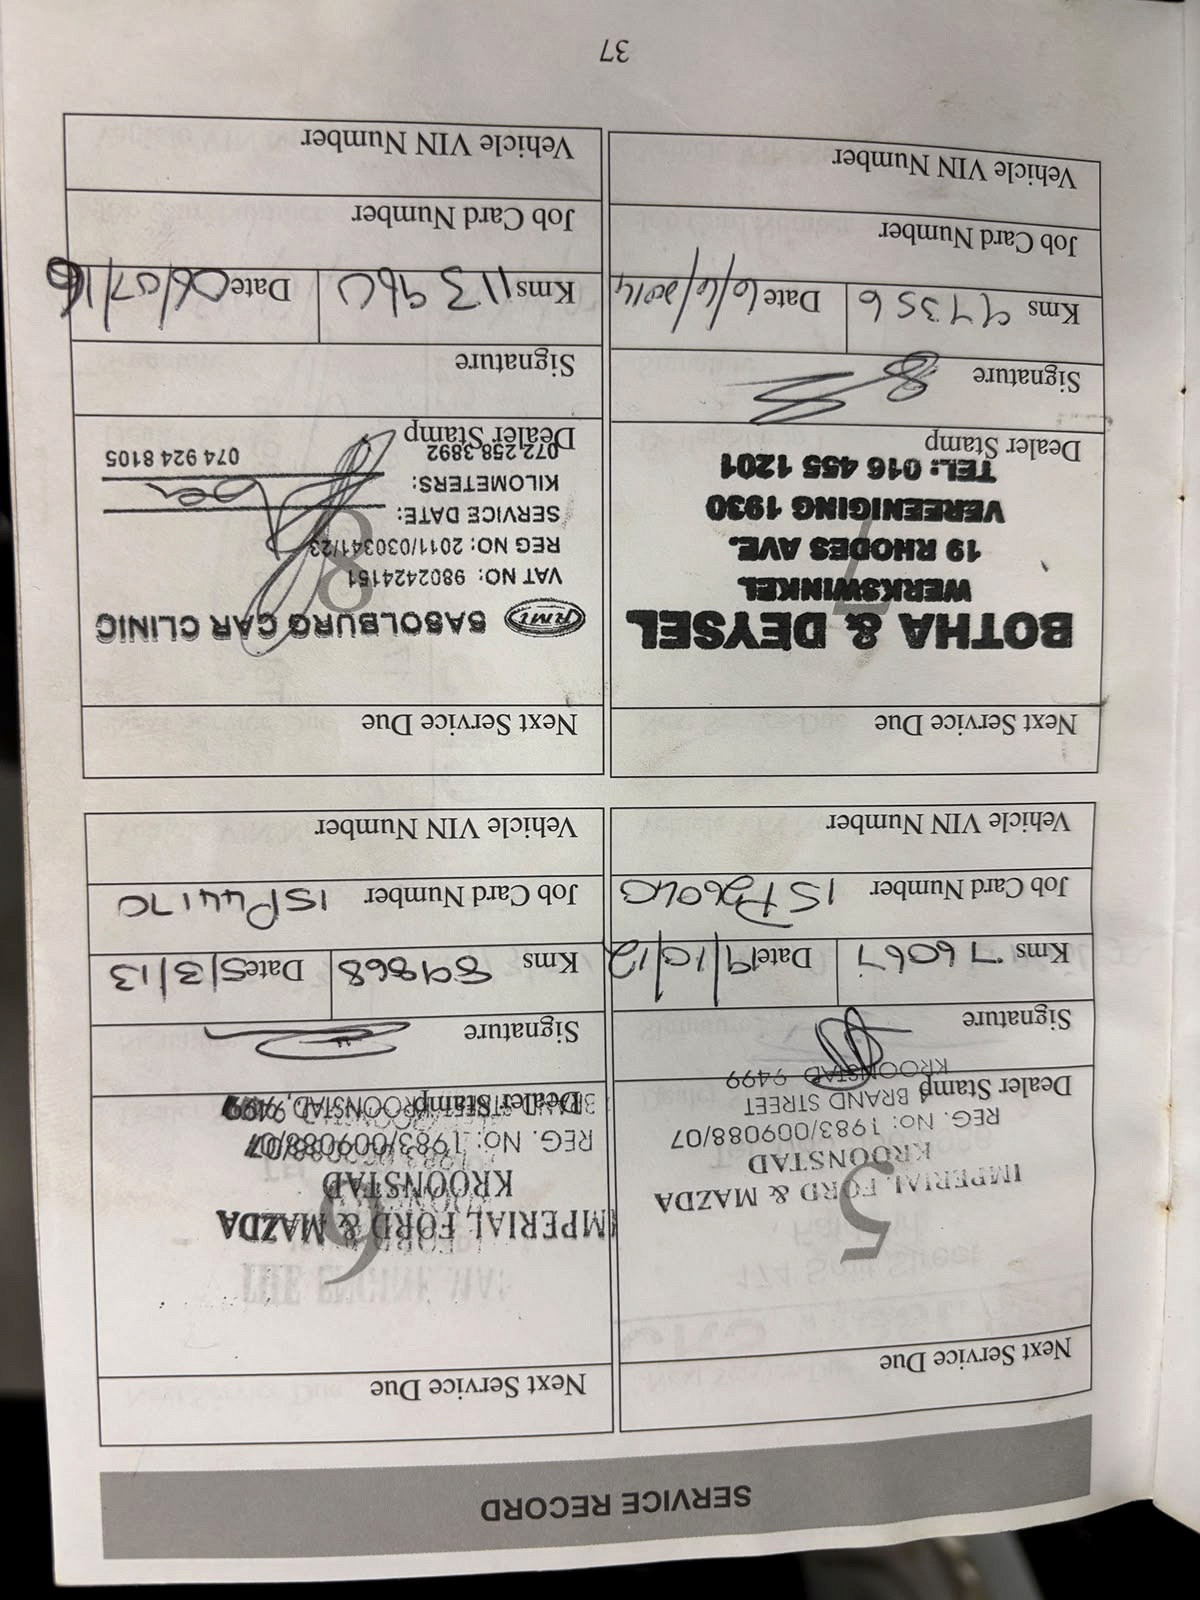 SERVICE RECORD
Next Service Due
5
IMPERIAL FORD & MAZDA
KROONSTAD
REG. No: 1983/009088/07
BRAND STREET
Dealer Stamp
KROONSTAD 9499
Signature
Kms 76067
Date 19/10/12
Job Card Number
Vehicle VIN Number
Next Service Due
6
IMPERIAL FORD & MAZDA
KROONSTAD
REG. No: 1983/009088/07
Dealer Stamp
KROONSTAD, 9499
Signature
Kms 89868
Date 5/3/13
Job Card Number ISP44170
Vehicle VIN Number
Next Service Due
7
BOTHA & DEYSEL
WERKSWINKEL
19 RHODES AVE.
VEREENIGING 1930
TEL: 016 455 1201
Dealer Stamp
Signature
Kms 97356
Date 6/6/2014
Job Card Number
Vehicle VIN Number
Next Service Due
8
RMI SASOLBURG CAR CLINIC
VAT NO: 9802424151
REG NO: 2011/030341/23
SERVICE DATE:
KILOMETERS:
072 258 3892 074 924 8105
Dealer Stamp
Signature
Kms 113960
Date 06/07/16
Job Card Number
Vehicle VIN Number
37